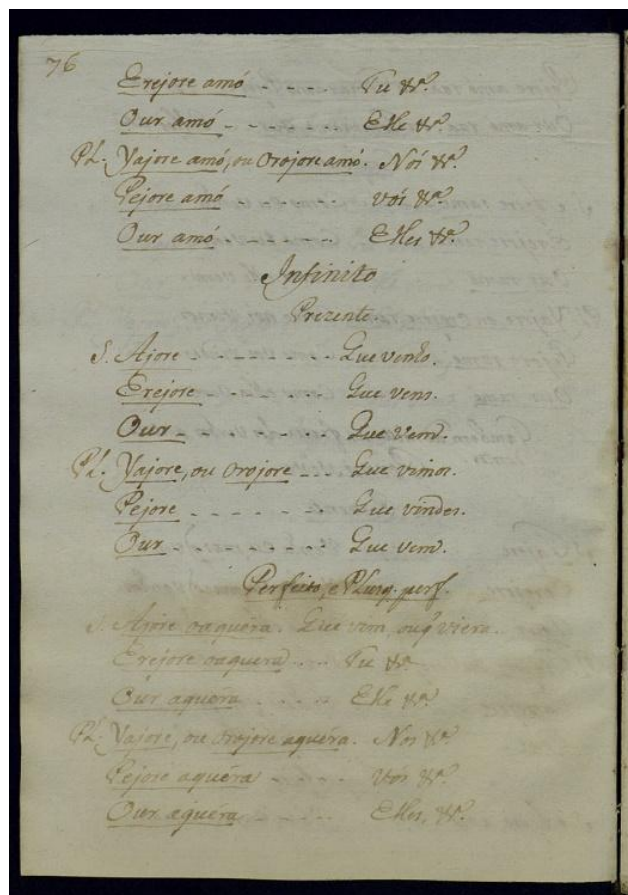 76
Erejore amó - - - - - Tu &ª.
Our amó - - - - - Elle &ª.
Pl. Yajore amó, ou Orojore amó. Nós &ª.
Pejore amó - - - - vós &ª.
Our amó - - - - - Elles &ª.
Infinito
Prezente.
S. Ajore - - - - - - - Que venho.
Erejore - - - - - - Que vens.
Our - - - - - - - Que vem.
Pl. Yajore, ou Orojore - - - Que vimos.
Pejore - - - - - - - Que vindes.
Our - - - - - - - Que vem.
Perfeito, e Plusq. perf.
S. Ajore oaquéra. Que vim, ouq̃ viera.
Erejore oaquera - - - Tu &ª.
Our aquéra - - - - - Elle &ª.
Pl. Yajore, ou Orojore aquéra. Nós &ª.
Pejore aquéra - - - - - vós &ª.
Our aquéra - - - - - Elles, &ª.